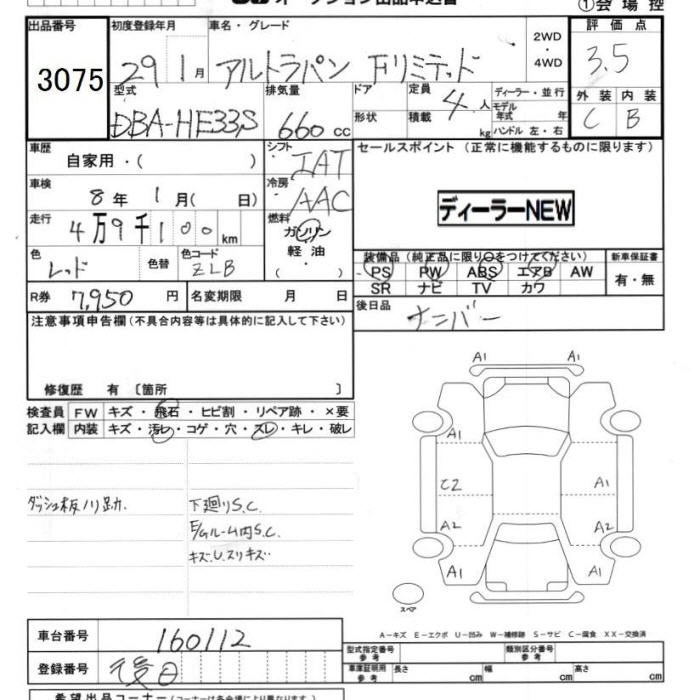 ①会場控
出品番号 初度登録年月 車名・グレード 2WD ・ 4WD 評価点
3075 29 1月 アルトラパン Fリミテッド 3.5
型式 排気量 ドア 定員 4人 ディーラー・並行 外装 内装
DBA-HE33S 660cc 形状 積載 kg モデル年式 年 ハンドル 左・右 C B
車歴 自家用・( ) シフト IAT セールスポイント (正常に機能するものに限ります)
車検 8年 1月( 日) 冷房 AAC
ディーラーNEW
走行 4万9千100km 燃料 ガソリン
軽油
( )
色 レッド 色替 色コード ZLB
装備品(純正品に限り○をつけてください) 新車保証書
PS PW ABS エアB AW 有・無
SR ナビ TV カワ
R券 7,950円 名変期限 月 日 後日品 ナンバー
注意事項申告欄(不具合内容等は具体的に記入して下さい)
修復歴 有 〔箇所 〕
検査員 FW キズ・飛石・ヒビ割・リペア跡・×要
記入欄 内装 キズ・汚レ・コゲ・穴・スレ・キレ・破レ
ダッシュ板ノリ跡. 下廻りS.C.
E/gルーム内S.C.
キズ.U.スリキズ.
A1 A1
A1
C2 A1
A2 A2
A1 A1
スペア
A-キズ E-エクボ U-凹み W-補修跡 S-サビ C-腐食 XX-交換済
車台番号 160112
型式指定番号 参考 類別区分番号 参考
登録番号 後日
車庫証明用 参考 長さ cm 幅 cm 高さ cm
希望出品コーナー(コーナーは各会場により異なります)